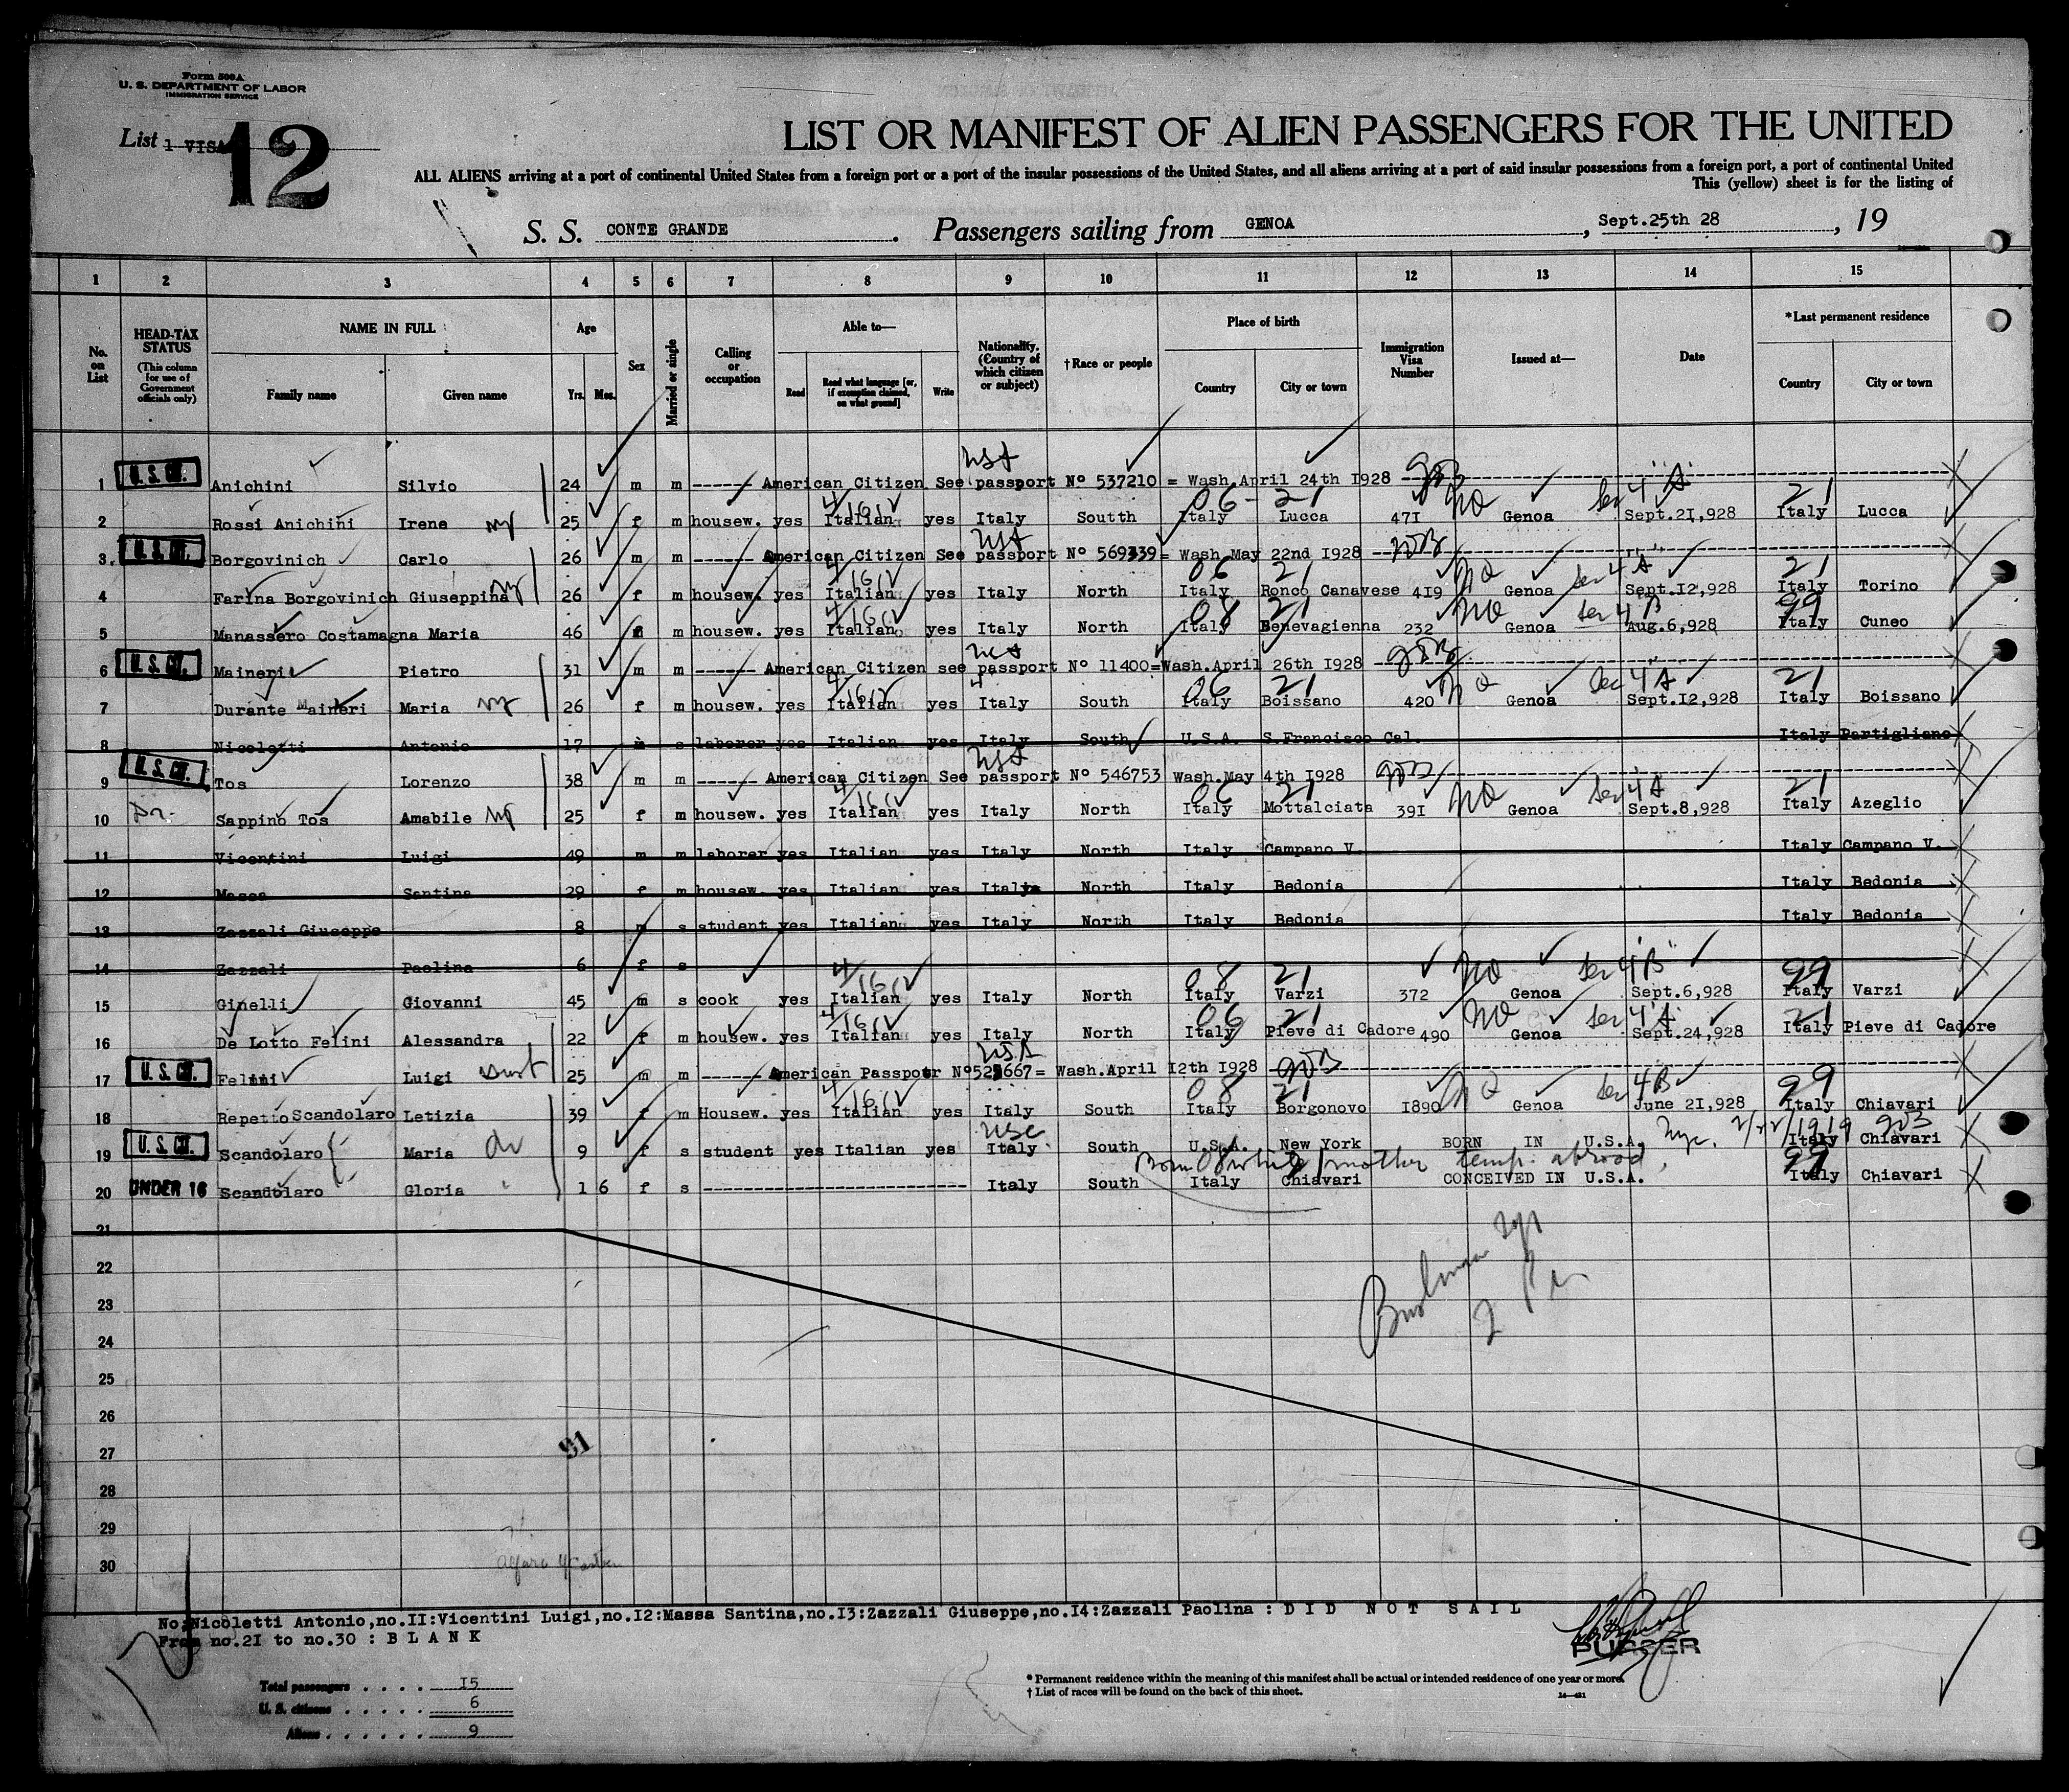 Form 500A
U. S. DEPARTMENT OF LABOR
IMMIGRATION SERVICE
List 1 VISA 12
LIST OR MANIFEST OF ALIEN PASSENGERS FOR THE UNITED
ALL ALIENS arriving at a port of continental United States from a foreign port or a port of the insular possessions of the United States, and all aliens arriving at a port of said insular possessions from a foreign port, a port of continental United
This (yellow) sheet is for the listing of
S. S. CONTE GRANDE . Passengers sailing from GENOA , Sept.25th 28 , 19
1 2 3 4 5 6 7 8 9 10 11 12 13 14 15
No. on List
HEAD-TAX STATUS (This column for use of Government officials only)
NAME IN FULL
Family name Given name
Age
Yrs. Mos.
Sex
Married or single
Calling or occupation
Able to—
Read Read what language [or, if exemption claimed, on what ground] Write
Nationality. (Country of which citizen or subject)
†Race or people
Place of birth
Country City or town
Immigration Visa Number
Issued at—
Date
*Last permanent residence
Country City or town
1 U. S. CIT. Anichini Silvio 24 m m American Citizen See passport Nº 537210 = Wash April 24th I928
2 Rossi Anichini Irene 25 f m housew. yes Italian yes Italy Soutth Italy Lucca 47I Genoa Sept.2I,928 Italy Lucca
3 U. S. CIT. Borgovinich Carlo 26 m m American Citizen See passport Nº 569339= Wash May 22nd I928
4 Farina Borgovinich Giuseppina 26 f m housew. yes Italian yes Italy North Italy Ronco Canavese 4I9 Genoa Sept.I2,928 Italy Torino
5 Manassero Costamagna Maria 46 m housew. yes Italian yes Italy North Italy Benevagienna 232 Genoa Aug.6,928 Italy Cuneo
6 U. S. CIT. Maineri Pietro 31 m m American Citizen see passport Nº II400=Wash.April 26th I928
7 Durante Maineri Maria 26 f m housew. yes Italian yes Italy South Italy Boissano 420 Genoa Sept.I2,928 Italy Boissano
8 Nicoletti Antonio 17 m s laborer yes Italian yes Italy South U.S.A. S.Francisco Cal. Italy Partigliano
9 U. S. CIT. Tos Lorenzo 38 m m American Citizen See passport Nº 546753 Wash.May 4th I928
10 Sappino Tos Amabile 25 f m housew. yes Italian yes Italy North Italy Mottalciata 39I Genoa Sept.8,928 Italy Azeglio
11 Vicentini Luigi 49 m m laborer yes Italian yes Italy North Italy Campano V. Italy Campano V.
12 Massa Santina 29 f m housew. yes Italian yes Italy North Italy Bedonia Italy Bedonia
13 Zazzali Giuseppe 8 m s student yes Italian yes Italy North Italy Bedonia Italy Bedonia
14 Zazzali Paolina 6 f s
15 Ginelli Giovanni 45 m s cook yes Italian yes Italy North Italy Varzi 372 Genoa Sept.6,928 Italy Varzi
16 De Lotto Felini Alessandra 22 f m housew. yes Italian yes Italy North Italy Pieve di Cadore 490 Genoa Sept.24,928 Italy Pieve di Cadore
17 U. S. CIT. Luigi 25 m m American Wash.April I2th I928
18 Repetto Scandolaro Letizia 39 f m Housew. yes Italian yes Italy South Italy Borgonovo I890 Genoa June 2I,928 Italy Chiavari
19 U. S. CIT. Scandolaro Maria 9 f s student yes Italian yes Italy South U.S.A. New York BORN IN U.S.A. Italy Chiavari
Born while mother temp. abroad,
20 UNDER 16 Scandolaro Gloria 1 6 f s Italy South Italy Chiavari CONCEIVED IN U.S.A. Italy Chiavari
21
22
23
24
25
26
27
28
29
30
No;Nicoletti Antonio,no.II:Vicentini Luigi,no.I2:Massa Santina,no.I3:Zazzali Giuseppe,no.I4:Zazzali Paolina : D I D N O T S A I L
From no.2I to no.30 : B L A N K
PURSER
Total passengers . . . . I5
U. S. citizens . . . . . . 6
Aliens . . . . . . 9
* Permanent residence within the meaning of this manifest shall be actual or intended residence of one year or more.
† List of races will be found on the back of this sheet.